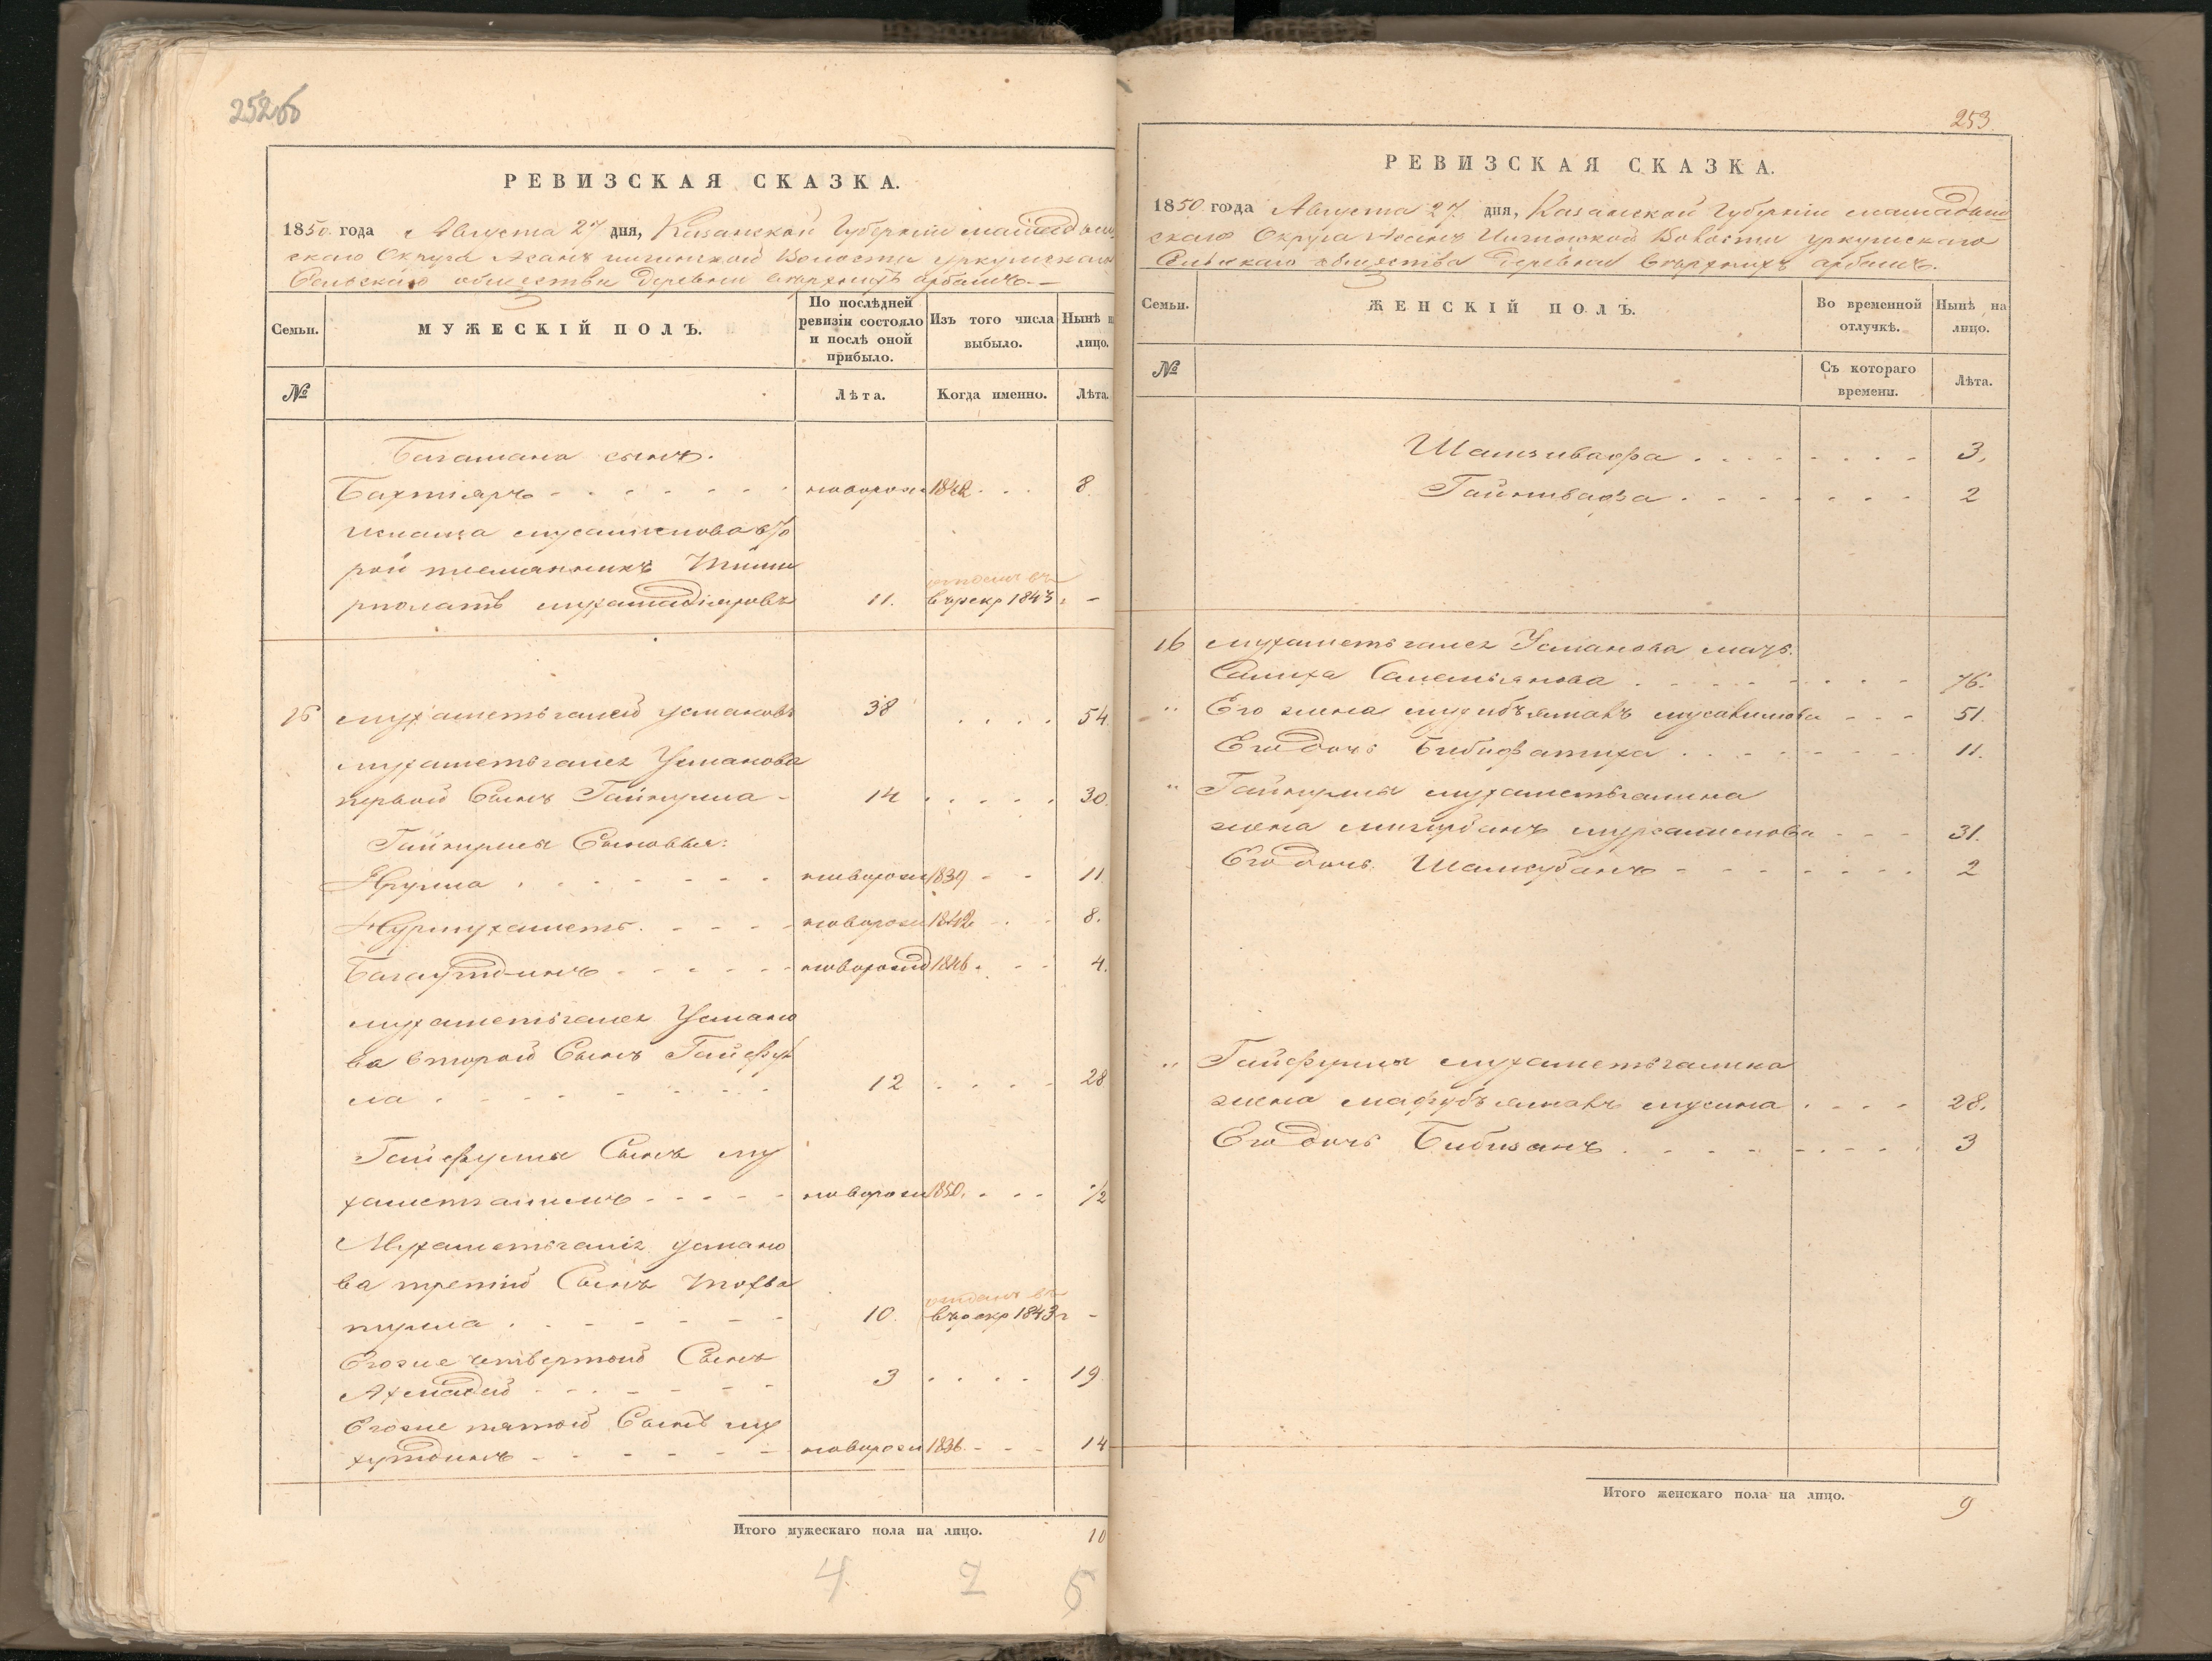 252об
РЕВИЗСКАЯ СКАЗКА.
1850 года Августа 27 дня, Казанской Губернии мамадыш
скаго Округа Асанъ илгинской Волости уркушскаго
Сельскаго общества Деревни Верхнихъ арбашъ
Семьи.
МУЖЕСКІЙ ПОЛЪ.
По послѣдней ревизіи состояло и послѣ оной прибыло.
Изъ того числа выбыло.
Нынѣ н лицо.
№
Лѣта.
Когда именно.
Лѣта.
Багамана сынъ.
Бахтіяръ новорож 1842 8
мусалимова вто
рой племянникъ Тими
рполатъ мухамадіяровъ 11. отданъ въ въ рекр 1843 г -
16 мухаметьгалей усмановъ 38 54
мухаметьгалея Усманова
первой Сынъ Гайнулла 14 30.
Гайнуллы Сыновья:
новорож 1839 11
Нурмухаметъ новорож 1842 8.
Багаутдинъ новорожд 1846 4.
мухаметьгалея Усмано
ва второй Сынъ Гайфул
ла 12 28
Гайфуллы Сынъ му
хаметъгалимъ новорож 1850. 1/2
Мухаметьгалія усмано
ва третій Сынъ Тохва
тулла 10. отданъ въ въ рекр 1843 г -
Егоже четвертой Сынъ
Ахмадей 3 19
Егоже пятой Сынъ му
хутдинъ новорож 1836 14
Итого мужескаго пола на лицо. 10
4 2 5
253
РЕВИЗСКАЯ СКАЗКА.
1850 года Августа 27 дня, Казанской Губерніи мамадыш
скаго Округа Асанъ Илгинской Волости уркушскаго
Сельскаго общества Деревни Верхнихъ арбашъ.
Семьи.
ЖЕНСКІЙ ПОЛЪ.
Во временной отлучкѣ.
Нынѣ на лицо.
№
Съ котораго времени.
Лѣта.
Шамзивафа 3.
Гайнивафа 2
16 мухаметьгалея Усманова мать
Салиха Самельянова 76.
" Его жена мусавимова 51.
Его дочь Бибифатиха 11.
" Гайнуллы мухаметьгалина
жена 31.
Его дочь Шамсубанъ 2
" Гайфуллы мухаметьгалина
жена мафубъяманъ мусина 28.
Его дочь Бибизанъ 3
Итого женскаго пола на лицо. 9